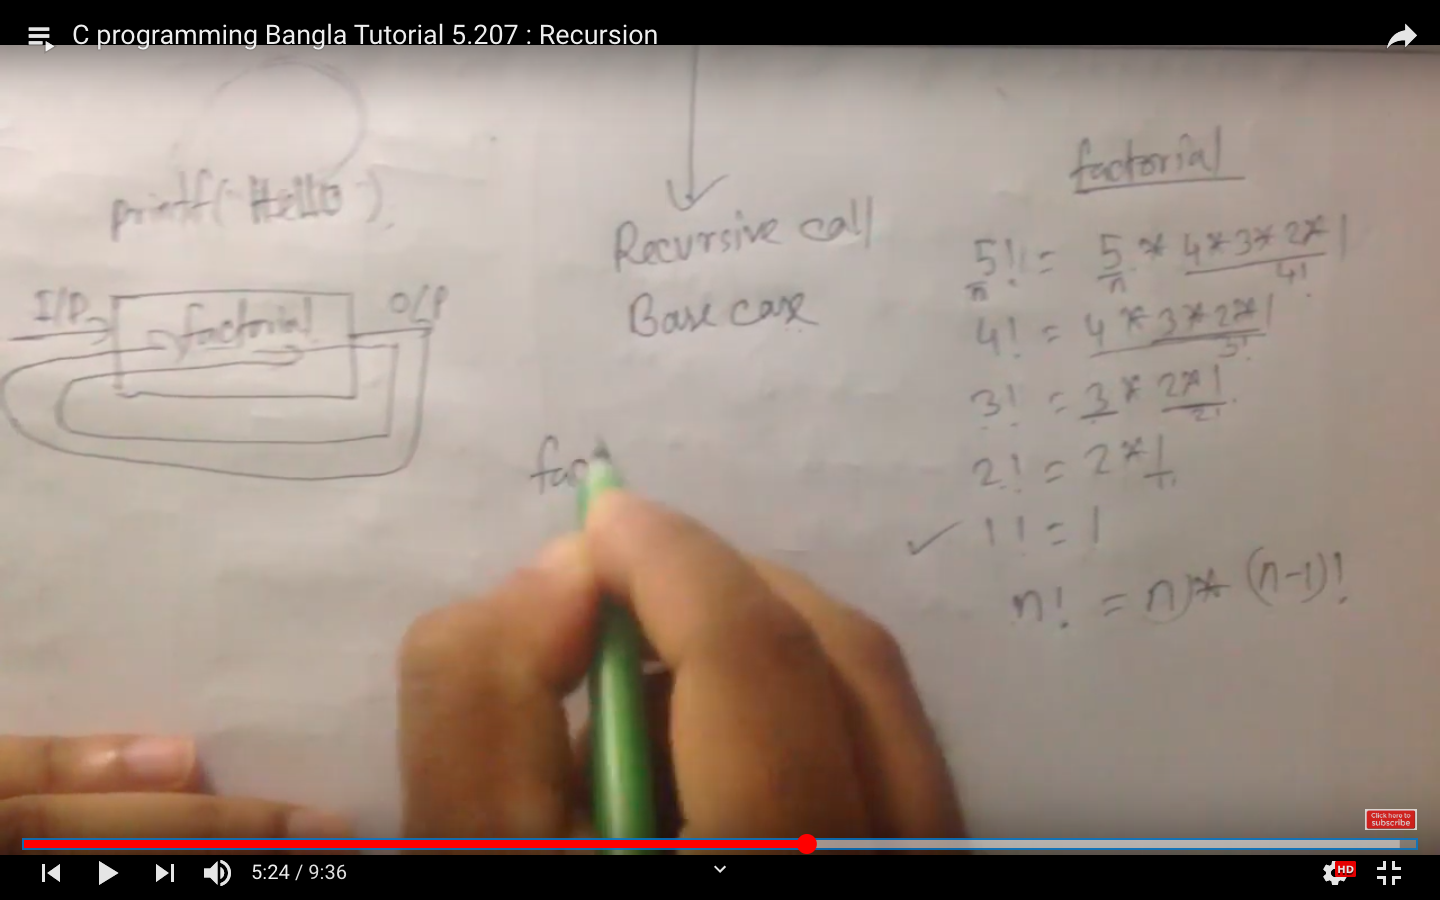 C programming Bangla Tutorial 5.207 : Recursion
printf("Hello");
I/P
factorial
O/P
Recursive call
Base case
fac
factorial
5! = 5 * 4*3*2*1
n n 4!
4! = 4 * 3*2*1
3!
3! = 3 * 2*1
2!
2! = 2 * 1
1! = 1
n! = n * (n-1)!
Click here to
subscribe
5:24 / 9:36
HD